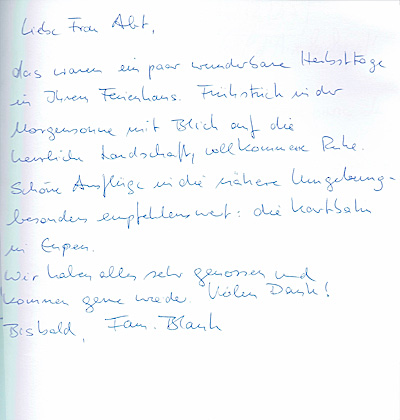 Liebe Frau Abt,
das waren ein paar wunderbare Herbsttage
in Ihrem Ferienhaus. Frühstück in der
Morgensonne mit Blick auf die
herrliche Landschaft, vollkommene Ruhe.
Schöne Ausflüge in die nähere Umgebung -
besonders empfehlenswert: die Kartbahn
in Eupen.
Wir haben alles sehr genossen und
kommen gerne wieder. Vielen Dank!
Bis bald, Fam. Blank